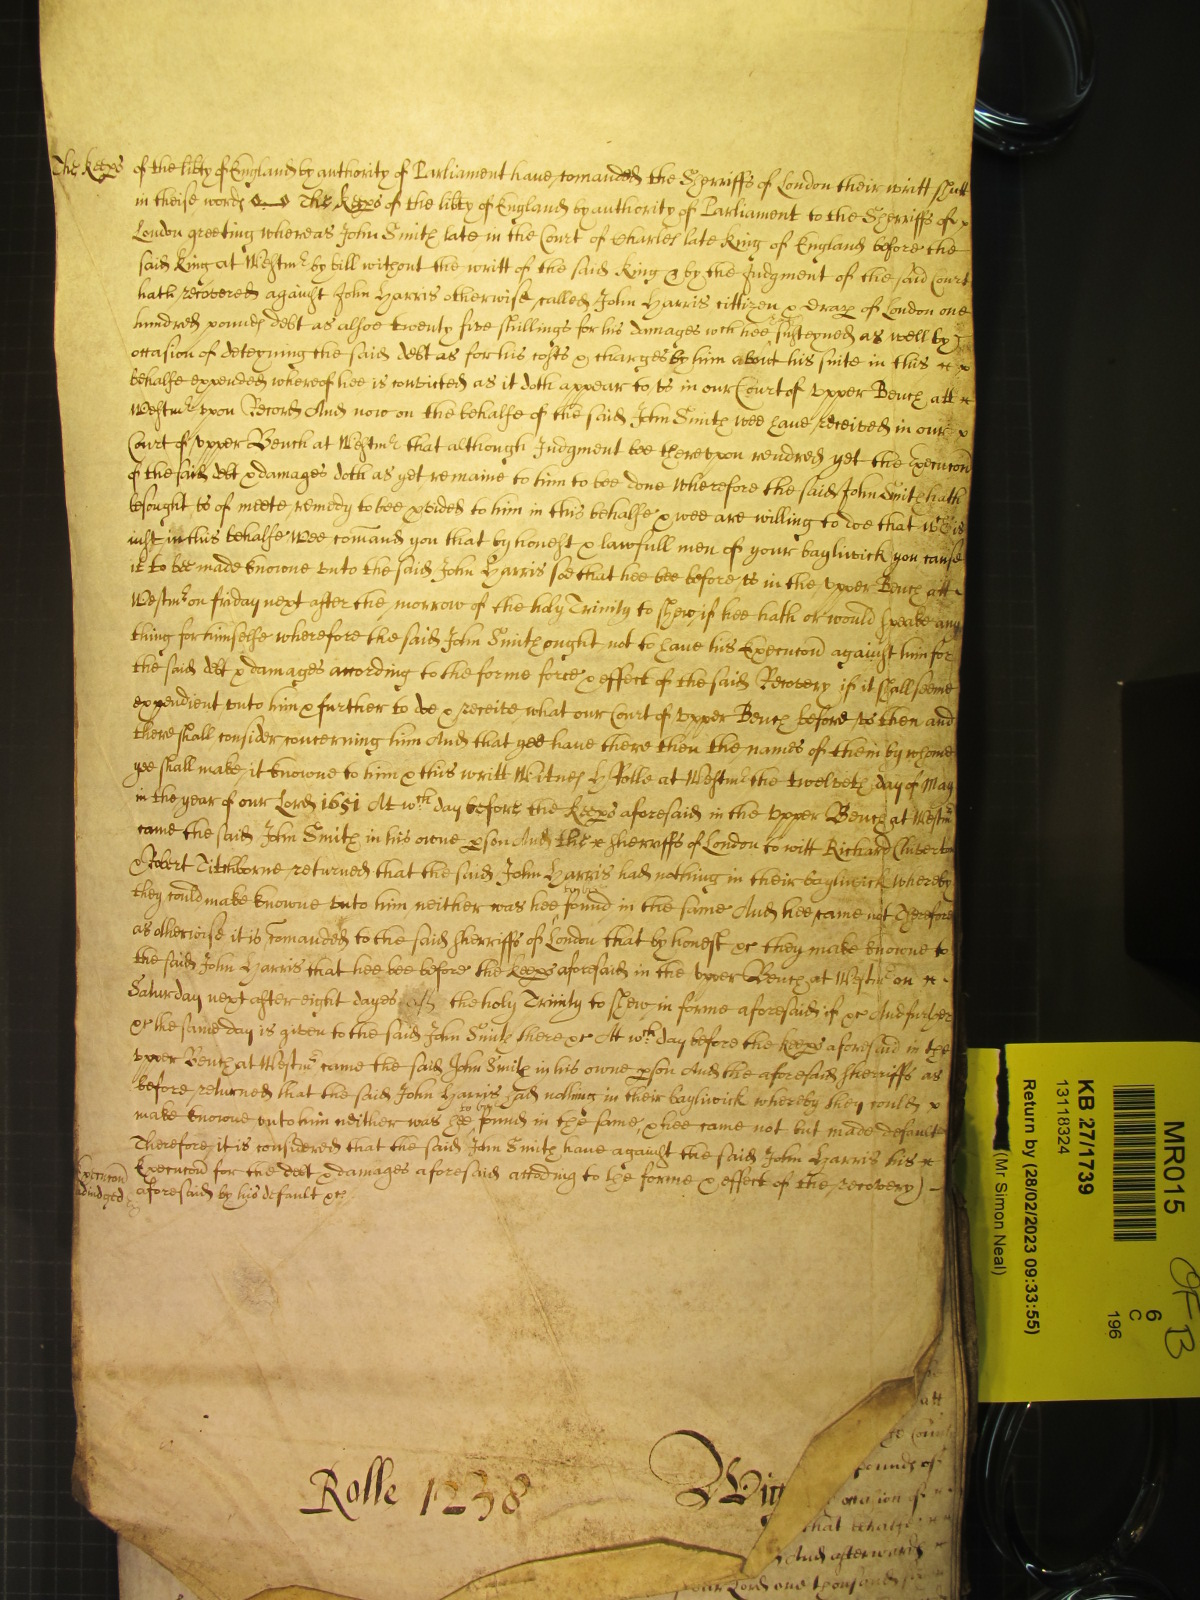 The Keeps of the libty of England by authority of Parliament have comanded the Sherriffs of London their writt shutt
in theise words The Keeps of the libty of England by authority of Parliament to the Sherriffs of
London greeting whereas John Smith late in the Court of Charles late King of England before the
said King at Westmr by bill without the writt of the said King & by the Judgment of the said Court
hath recovered against John Harris otherwise called John Harris cittizen & Drap of London one
hundred pounds debt as alsoe twenty five shillings for his damages wch hee susteyned as well by
occasion of deteyning the said debt as for his costs & charges by him about his suite in this
behalfe expended whereof hee is convicted as it doth appear to us in our Court of Upper Bench att
Westmr upon Record And now on the behalfe of the said John Smith wee have received in our
Court of upper Bench at Westmr that although Judgment bee thereupon rendred yet the execucon
of the said debt & damages doth as yet remaine to him to bee done Wherefore the said John Smith hath
besought us of meete remedy to bee pvided to him in this behalfe & wee are willing to doe that wch is
iust in this behalfe Wee comand you that by honest & lawfull men of your bayliwick you cause
it to bee made knowne unto the said John Harris soe that hee bee before us in the upper Bench att
Westmr on friday next after the morrow of the holy Trinity to shew if hee hath or would speake any
thing for himselfe wherefore the said John Smith ought not to have his Execucon against him for
the said debt & damages according to the forme force & effect of the said Recovery if it shall seeme
expendient unto him & further to doe & receite what our Court of upper Bench before us then and
there shall consider concerning him And that yee have there then the names of them by whome
yee shall make it knowne to him & this writt Witnes H Rolle at Westmr the twelveth day of May
in the year of our Lord 1651 At wch day before the Keeps aforesaid in the Upper Bench at Westmr
came the said John Smith in his owne pson And the Sherriffs of London to witt Richard Chiverton
& Robert Titchborne returned that the said John Harris had nothing in their bayliwick whereby
they could make knowne unto him neither was hee to bee found in the same And hee came not Therefore
as otherwise it is comanded to the said Sherriffs of London that by honest &c they make knowne to
the said John Harris that hee bee before the Keeps aforesaid in the Upper Bench at Westmr on
Saturday next after eight dayes of the holy Trinity to shew in forme aforesaid if &c And further
&c the same day is given to the said John Smith there &c Att wch day before the keeps aforesaid in the
upper Bench at Westmr came the said John Smith in his owne pson And the aforesaid Sherriffs as
before returned that the said John Harris had nothing in their bayliwick whereby they could
make knowne unto him neither was hee to bee found in the same & hee came not but made default
Therefore it is considered that the said John Smith have against the said John Harris his
Execucon for the debt & damages aforesaid accoding to the forme & effect of the recovery
aforesaid by his default &c
Execucon
adiudged
Rolle 1238
Wig
att
pounds of
occasion of
that behalfe
And afterwards
our Lord one thousand
MR015
KB 27/1739
13118324
Return by (28/02/2023 09:33:55)
(Mr Simon Neal)
6
C
196
OFB